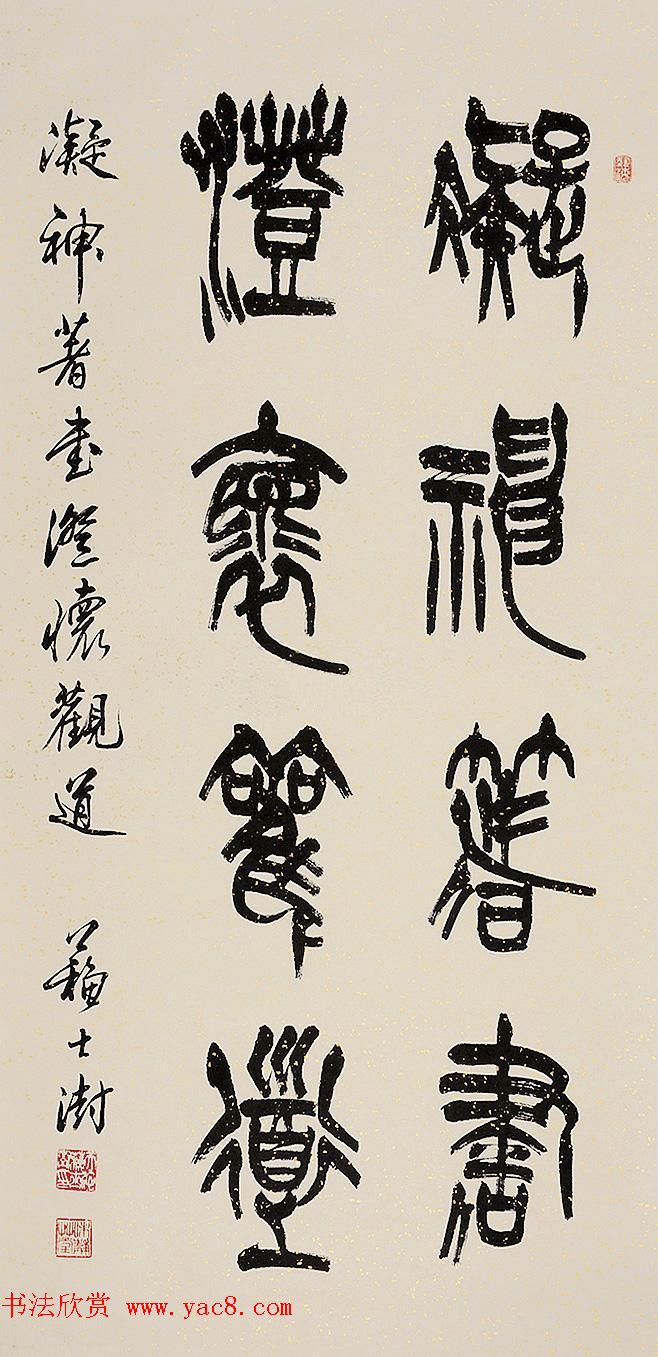 凝神著書
澄懷觀道
凝神著書澄懷觀道
蘇士澍
书法欣赏 www.yac8.com